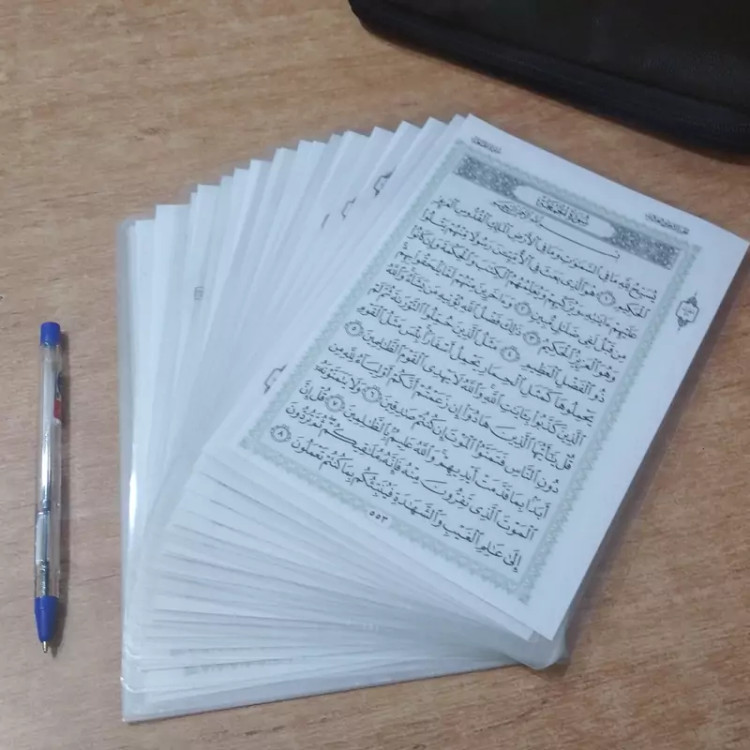 سُورَةُ الجُمُعَةِ
بِسْمِ ٱللَّهِ ٱلرَّحْمَٰنِ ٱلرَّحِيمِ
يُسَبِّحُ لِلَّهِ مَا فِي ٱلسَّمَٰوَٰتِ وَمَا فِي ٱلْأَرْضِ ٱلْمَلِكِ ٱلْقُدُّوسِ ٱلْعَزِيزِ
ٱلْحَكِيمِ ١ هُوَ ٱلَّذِي بَعَثَ فِي ٱلْأُمِّيِّـۧنَ رَسُولًا مِّنْهُمْ يَتْلُوا۟
عَلَيْهِمْ ءَايَٰتِهِۦ وَيُزَكِّيهِمْ وَيُعَلِّمُهُمُ ٱلْكِتَٰبَ وَٱلْحِكْمَةَ وَإِن كَانُوا۟
مِن قَبْلُ لَفِي ضَلَٰلٍ مُّبِينٍ ٢ وَءَاخَرِينَ مِنْهُمْ لَمَّا يَلْحَقُوا۟ بِهِمْ
وَهُوَ ٱلْعَزِيزُ ٱلْحَكِيمُ ٣ ذَٰلِكَ فَضْلُ ٱللَّهِ يُؤْتِيهِ مَن يَشَآءُ وَٱللَّهُ
ذُو ٱلْفَضْلِ ٱلْعَظِيمِ ٤ مَثَلُ ٱلَّذِينَ حُمِّلُوا۟ ٱلتَّوْرَىٰةَ ثُمَّ لَمْ
يَحْمِلُوهَا كَمَثَلِ ٱلْحِمَارِ يَحْمِلُ أَسْفَارًۢا بِئْسَ مَثَلُ ٱلْقَوْمِ
ٱلَّذِينَ كَذَّبُوا۟ بِـَٔايَٰتِ ٱللَّهِ وَٱللَّهُ لَا يَهْدِي ٱلْقَوْمَ ٱلظَّٰلِمِينَ ٥
قُلْ يَٰٓأَيُّهَا ٱلَّذِينَ هَادُوٓا۟ إِن زَعَمْتُمْ أَنَّكُمْ أَوْلِيَآءُ لِلَّهِ مِن
دُونِ ٱلنَّاسِ فَتَمَنَّوُا۟ ٱلْمَوْتَ إِن كُنتُمْ صَٰدِقِينَ ٦ وَلَا يَتَمَنَّوْنَهُۥٓ
أَبَدًۢا بِمَا قَدَّمَتْ أَيْدِيهِمْ وَٱللَّهُ عَلِيمٌۢ بِٱلظَّٰلِمِينَ ٧ قُلْ إِنَّ
ٱلْمَوْتَ ٱلَّذِي تَفِرُّونَ مِنْهُ فَإِنَّهُۥ مُلَٰقِيكُمْ ثُمَّ تُرَدُّونَ
إِلَىٰ عَٰلِمِ ٱلْغَيْبِ وَٱلشَّهَٰدَةِ فَيُنَبِّئُكُم بِمَا كُنتُمْ تَعْمَلُونَ ٨
٥٥٣